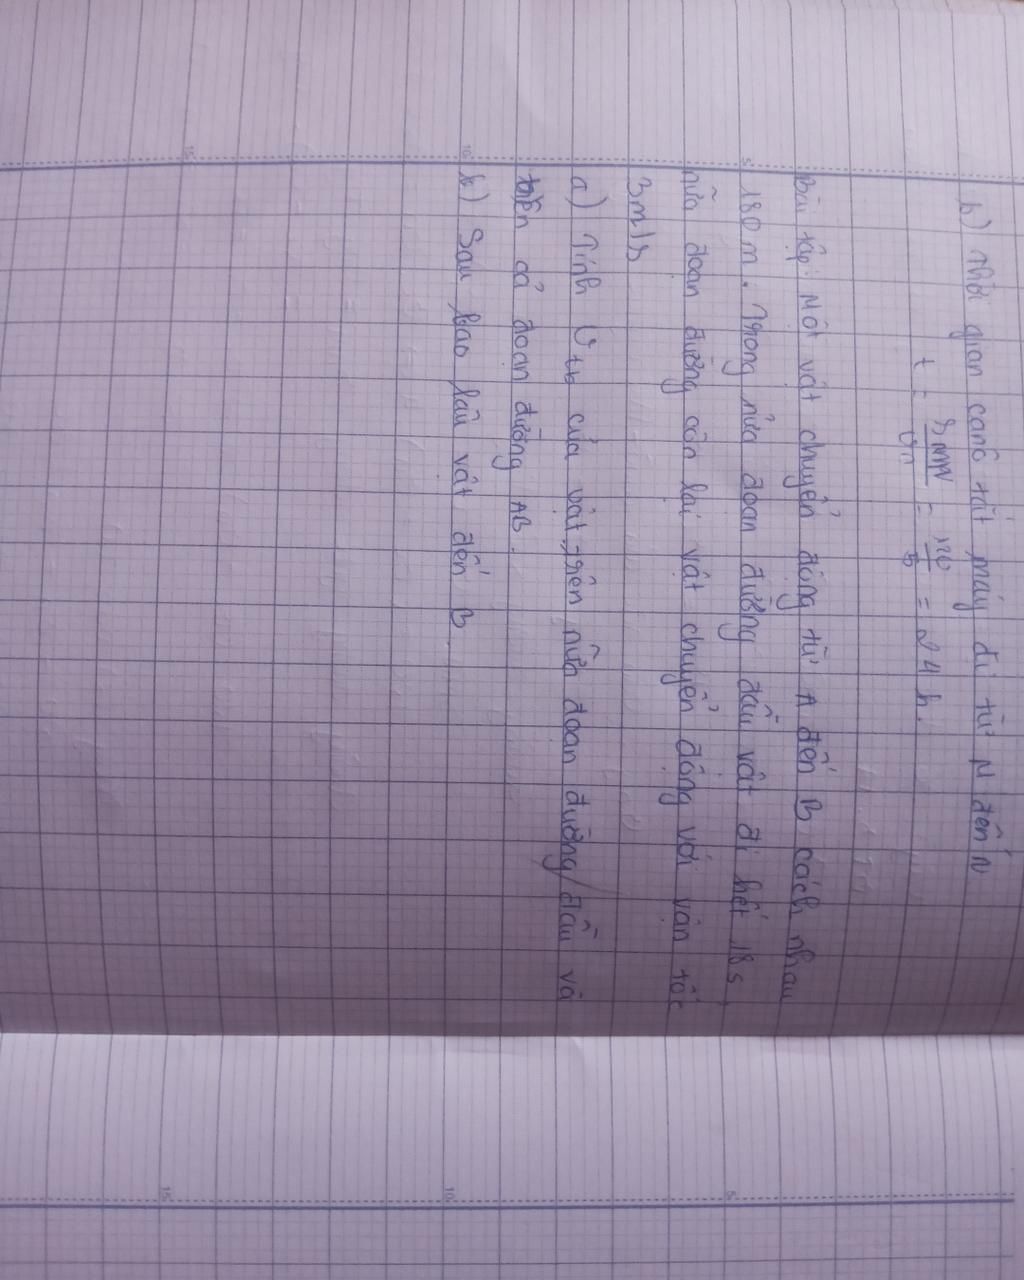 b) Thời gian canô tắt máy đi từ M đến N
t = SMN / Vn = 120 / 5 = 24 h.
Bài tập: Một vật chuyển động từ A đến B cách nhau
180 m. Trong nửa đoạn đường đầu vật đi hết 18 s,
nửa đoạn đường còn lại vật chuyển động với vận tốc
3m/s
a) Tính Vtb của vật trên nửa đoạn đường đầu và
trên cả đoạn đường AB.
b) Sau bao lâu vật đến B.
5
10
15
5
10
15